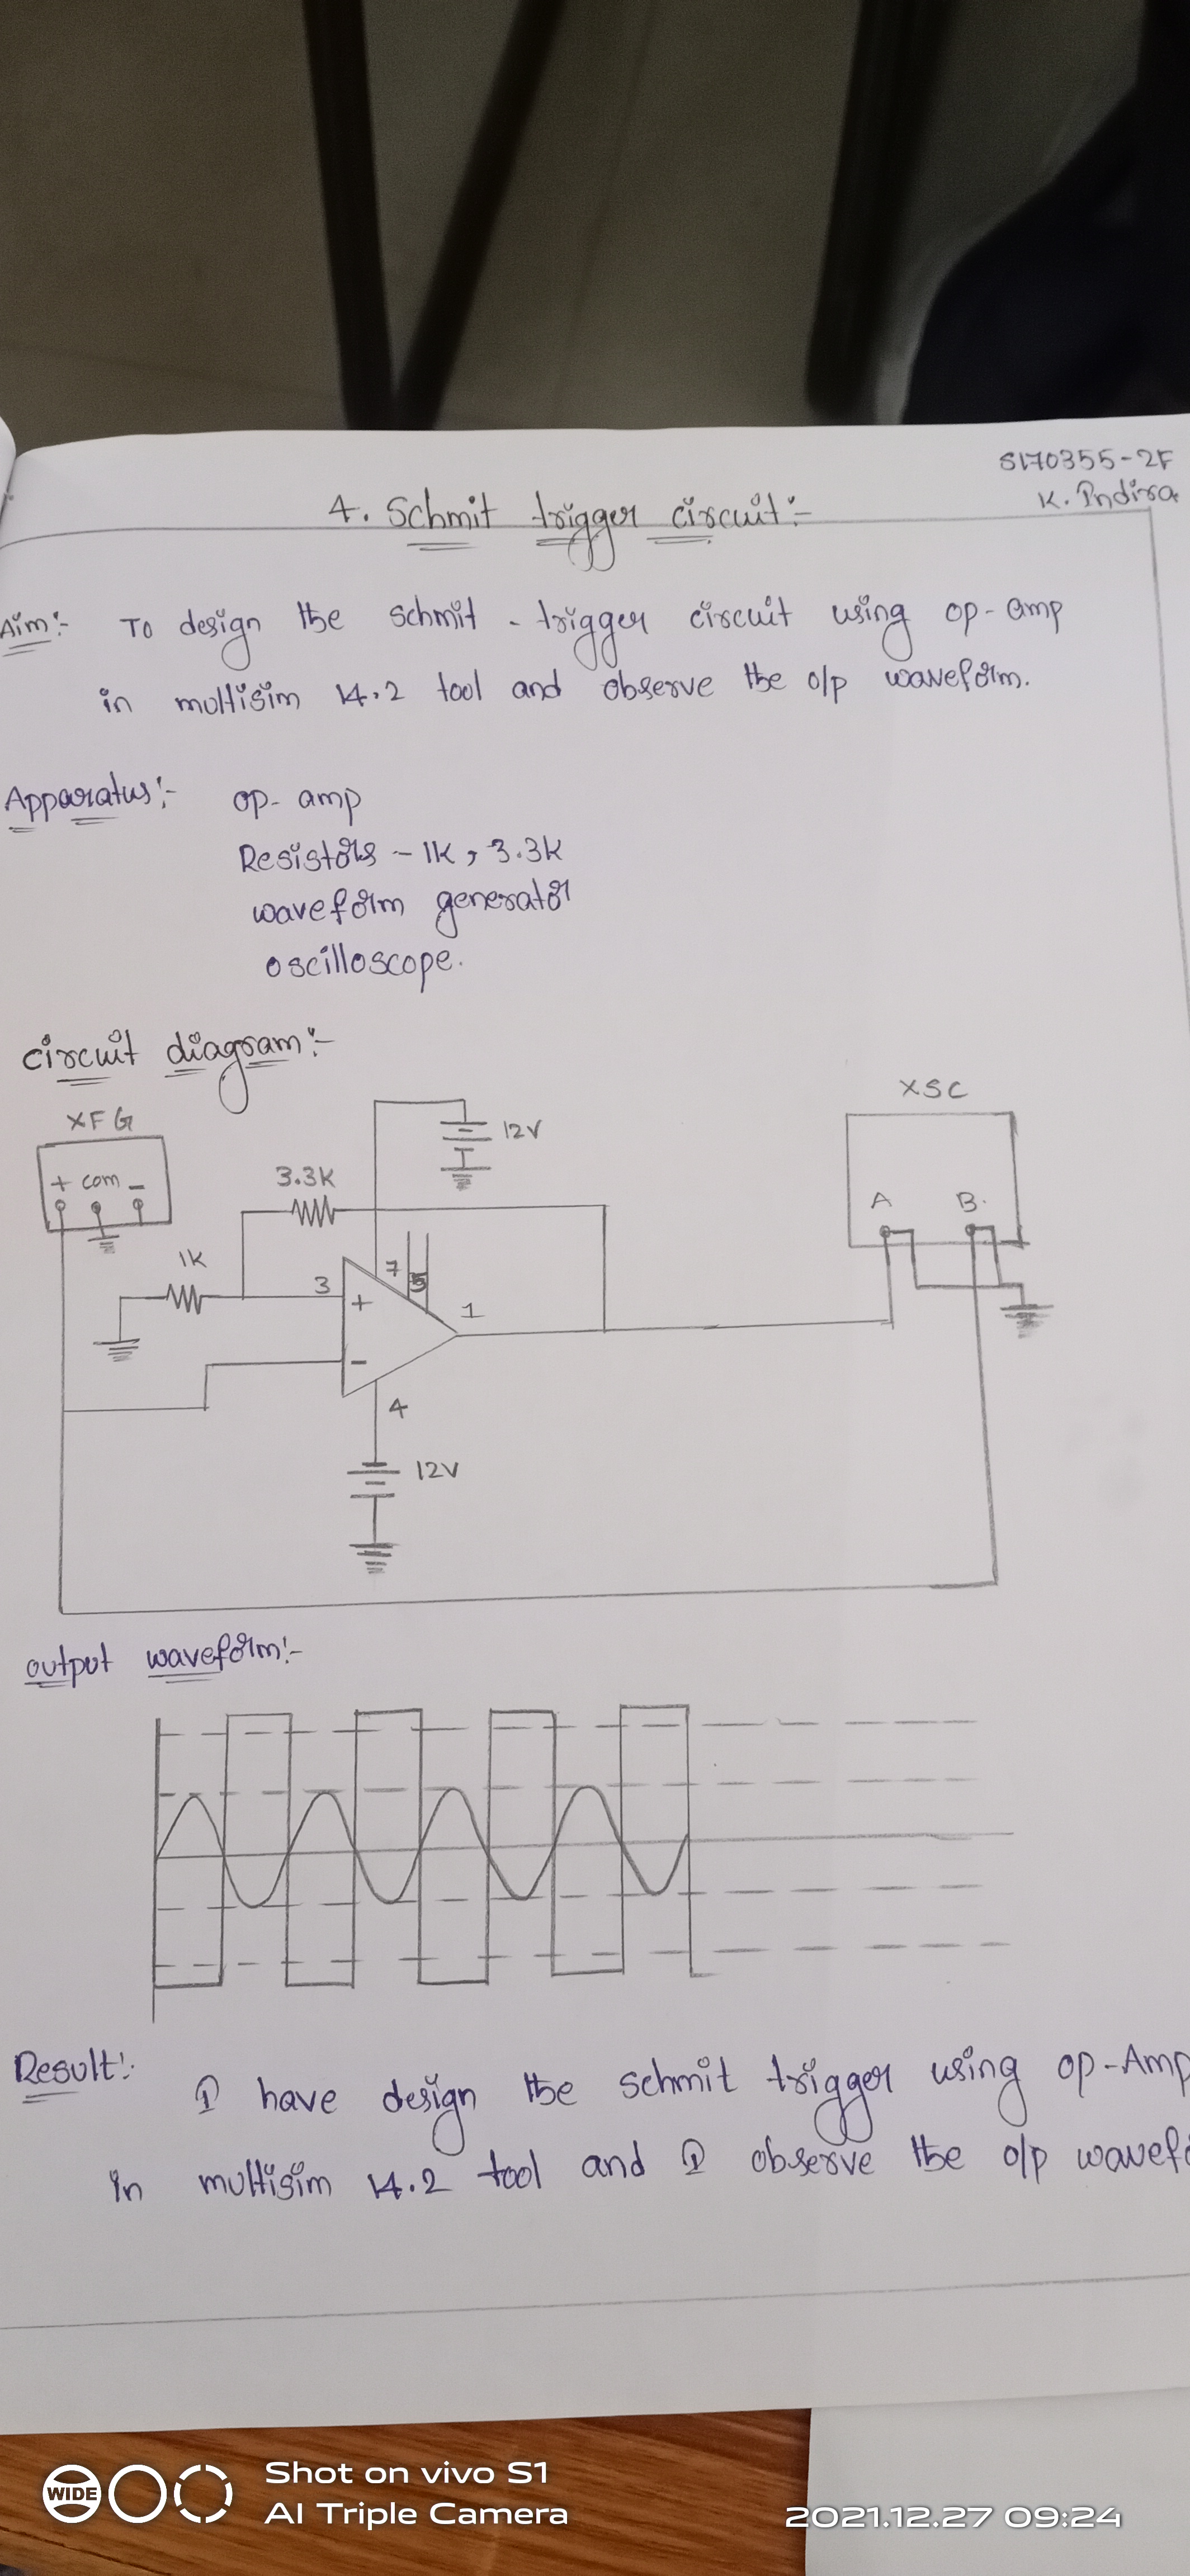 S170355-2F
K. Indira
4. Schmit trigger circuit:-
Aim:- To design the schmit - trigger circuit using op-amp
in multisim 14.2 tool and observe the o/p waveform.
Apparatus:- op-amp
Resistors - 1K, 3.3K
waveform generator
oscilloscope.
circuit diagram:-
XFG
+ com -
XSC
A B.
12V
3.3K
1K
3
+
7
5
1
-
4
12V
output waveform:-
Result:- I have design the schmit trigger using op-Amp
in multisim 14.2 tool and I observe the o/p
WIDE
Shot on vivo S1
AI Triple Camera
2021.12.27 09:24